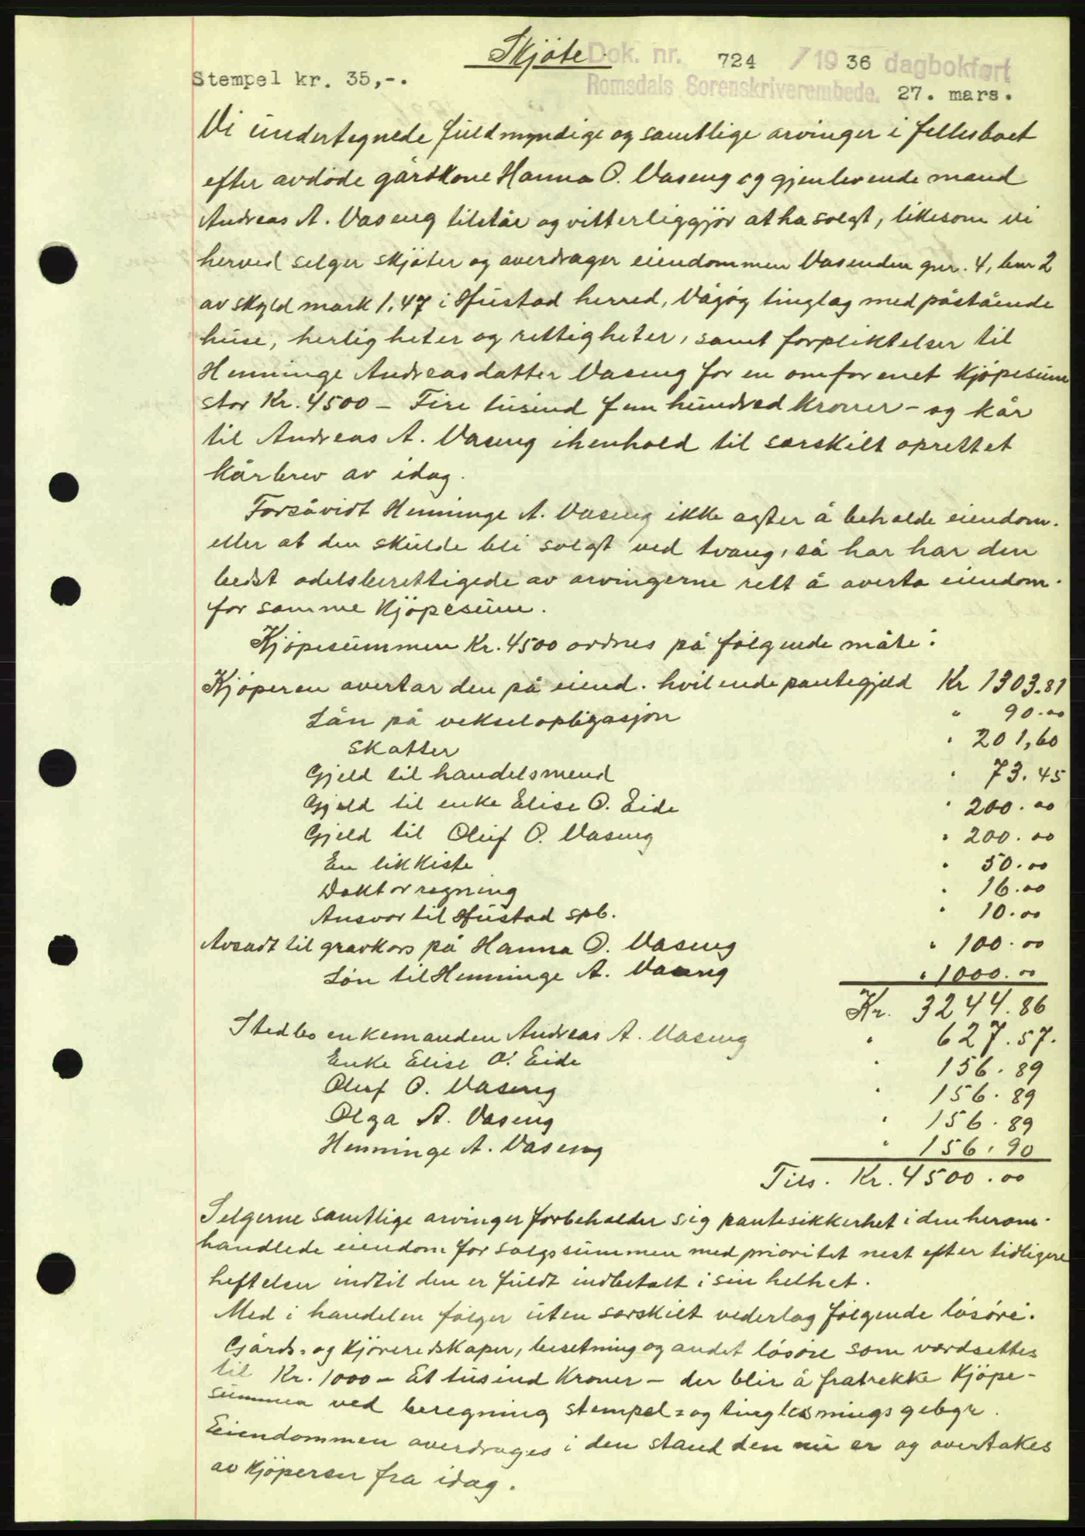 Skjøte.
Dok. nr. 724 /1936 dagbokført
Stempel kr. 35,-.
Romsdals Sorenskriverembede. 27. mars.
Vi undertegnede fuldmyndige og samtlige arvinger i fellesboet
efter avdøde gårdkone Hanna O. Vaseng og gjenlevende mand
Andreas A. Vaseng tilstår og vitterliggjør at ha solgt, likesom vi
herved selger skjøter og overdrager eiendommen Vasenden gnr. 4, bnr 2
av skyld mark 1,47 i Hustad herred, Vågøy tinglag med påstående
huse, herligheter og rettigheter, samt forpliktelser til
Henninge Andreasdatter Vaseng for en omforenet kjøpesum
stor Kr. 4500 - Fire tusind fem hundred kroner - og kår
til Andreas A. Vaseng i henhold til særskilt oprettet
kårbrev av idag.
Forsåvidt Henninge A. Vaseng ikke agter å beholde eiendom.
eller at den skulde bli solgt ved tvang, så har har den
bedst odelsberettigede av arvingerne rett å overta eiendom.
for samme kjøpesum.
Kjøpesummen Kr. 4500 ordnes på følgende måte:
Kjøperen overtar den på eiend. hvilende pantegjeld Kr 1303.81
Lån på vekselobligasjon " 90.00
Skatter " 201,60
Gjeld til handelsmend " 73.45
Gjeld til enke Elise O. Eide " 200.00
Gjeld til Oluf O. Vaseng " 200.00
En likkiste " 50.00
Doktorregning " 16.00
Ansvar til Hustad spb. " 10.00
Avsadt til gravkors på Hanna O. Vaseng " 100.00
Løn til Henninge A. Vaseng " 1000.00
Kr. 3244.86
Stedlev enkemanden Andreas A. Vaseng " 627.57.
Enke Elise O. Eide " 156.89
Oluf O. Vaseng " 156.89
Olga A. Vaseng " 156.89
Henninge A. Vaseng " 156.90
Tils. Kr. 4500.00
Selgerne samtlige arvinger forbeholder sig pantesikkerhet i den herom-
handlede eiendom for salgssummen med prioritet nest efter tidligere
heftelser indtil den er fuldt indbetalt i sin helhet.
Med i handelen følger uten særskilt vederlag følgende løsøre:
Gårds- og kjøreredskaper, besetning og andet løsøre som værdsettes
til Kr. 1000 - Et tusind Kroner - der blir å fratrekke kjøpe-
summen ved beregning stempel- og tinglesningsgebyr.
Eiendommen overdrages i den stand den nu er og overtakes
av kjøperen fra idag.